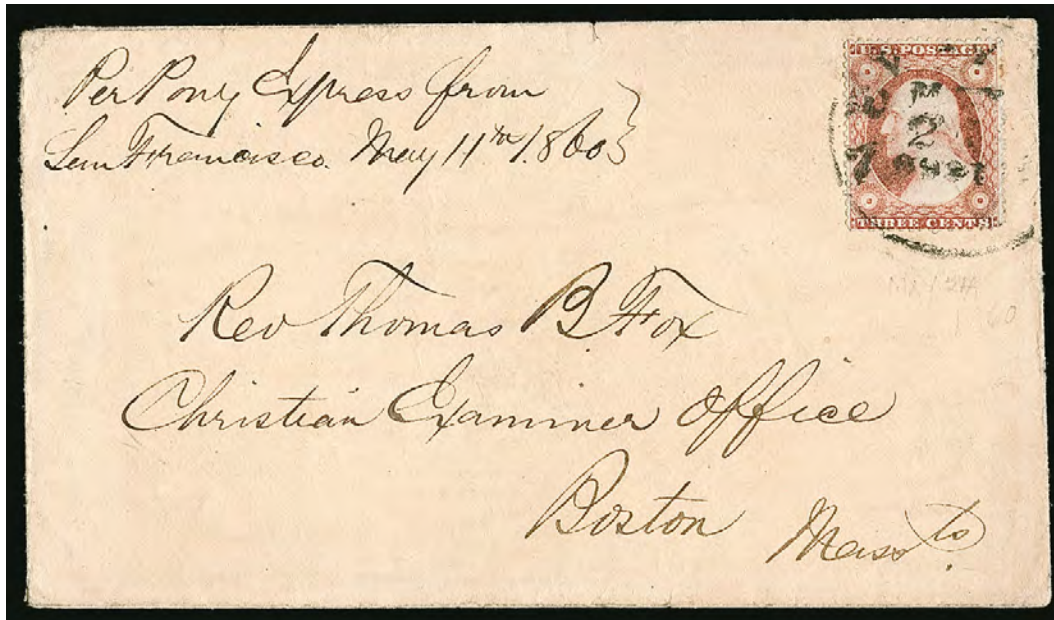 Per Pony Express from
San Francisco. May 11th 1860
U.S. POSTAGE
THREE CENTS
Rev Thomas B Fox
Christian Examiner Office
Boston
Massts.